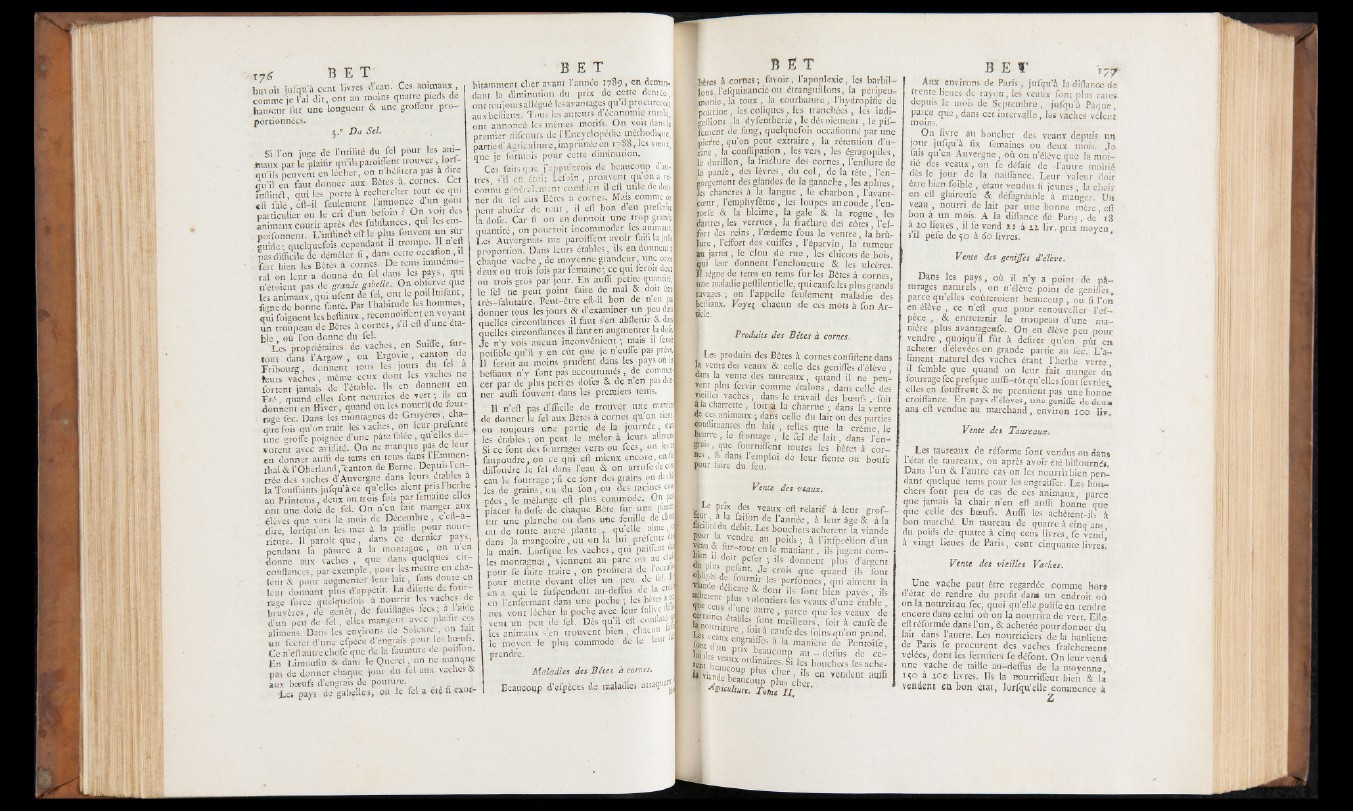 176 BET
buvoit jusqu'à cent livres d'eau. Ces animaux,
comme je l'ai dit, ont au moins quatre pieds de
hauteur sur une longueur & une grosseur pro-
portionnées.
3.° Du Sel.
Si l'on juge de l'utilité du sel pour les ani-
maux par le plaisir qu'ils paroissent trouver, lors-
qu'ils peuvent en lécher, on n'hésitera pas à dire
qu'il en faut donner aux Bêtes à cornes. Cet
instinct, qui les porte à rechercher tout ce qui
est salé, est-il seulement l'annonce d'un goût
particulier ou le cri d'un besoin ? On voit des
animaux courir après des substances, qui les em-
poisonnent. L'instinct est le plus souvent un sûr
guide; quelquefois cependant il trompe. Il n'est
pas difficile de démêler si, dans cette occasion, il
sert bien les Bêtes à cornes. De tems immémo-
rial on leur a donné du sel dans les pays, qui
n'étoient pas de grande gabelle. On observe que
les animaux, qui usent de sel, ont le poil luisant,
signe de bonne santé. Par l'habitude les hommes,
qui soignent les bestiaux, reconnoissent en voyant
un troupeau de Bêtes à cornes, s'il est d'une éta-
ble, où l'on donne du sel.
Les propriétaires de vaches, en Suisse, sur-
tout dans l'Argow, ou Ergovie, canton de
Fribourg, donnent tous les jours du sel à
leurs vaches, même ceux dont les vaches ne
sortent jamais de l'étable. Ils en donnent en
Eté, quand elles sont nourries de vert; ils en
donnent en Hiver, quand on les nourrit de four-
rage sec. Dans les montagnes de Gruyères, cha-
que fois qu'on trait les vaches, on leur présente
une grosse poignée d'une pâte salée, qu'elles dé-
vorent avec avidité. On ne manque pas de leur
en donner aussi de tems en tems dans l'Emmen-
thal & l'Oberland, canton de Berne. Depuis l'en-
trée des vaches d'Auvergne dans leurs étables à
la Toussaints jusqu'à ce qu'elles aient pris l'herbe
au Printems, deux ou trois fois par semaine elles
ont une dose de sel. On n'en fait manger aux
élèves que vers le mois de Décembre, c'est-à-
dire, lorsqu'on les met à la paille pour nour-
riture. Il paroît que, dans ce dernier pays,
pendant la pâture à la montagne, on n'en
donne aux vaches, que dans quelques cir-
constances, par exemple, pour les mettre en cha-
leur & pour augmenter leur lait, sans doute en
leur donnant plus d'appétit. La disette de four-
rage force quelquefois à nourrir les vaches de
bruyères, de genêt, de feuillages secs; à l'aide
d'un peu de sel, elles mangent avec plaisir ces
alimens. Dans les environs de Saleure, on fait
un secret d'une espèce d'engrais pour les bœufs.
Ce n'est autre chose que de la saumure de poisson.
En Limousin & dans le Querci, on ne manque
pas de donner chaque jour du sel aux vaches &
aux bœufs d'engrais de pouture.
Les pays de gabelles, où le sel a été si exor-
BET
bitamment cher avant l'année 1789, en deman-
dant la diminution du prix de cette denrée,
ont toujours allégué les avantages qu'il procureroit
aux bestiaux. Tous les auteurs d'économie rurale,
ont annoncé les mêmes motifs. On voit dans le
premier discours de l'Encyclopédie méthodique,
partie d'Agriculture, imprimée en 1788, les vœux,
que je formois pour cette diminution.
Ces faits que j'appuierois de beaucoup d'au-
tres, s'il en étoit besoin, prouvent qu'on a re-
connu généralement combien il est utile de don-
ner du sel aux Bêtes à cornes. Mais comme on
peut abuser de tout, il est bon d'en prescrire
la dose. Car si on en donnoit une trop grande
quantité, on pourroit incommoder les animaux.
Les Auvergnats me paroissent avoir saisi la juste
proportion. Dans leurs étables, ils en donnent à
chaque vache, de moyenne grandeur, une once
deux ou trois fois par semaine; ce qui feroit deux
ou trois gros par jour. En aussi petite quantité,
le sel ne peut point faire de mal & doit être
très-salutaire. Peut-être est-il bon de n'en pas
donner tous les jours & d'examiner un peu dans
quelles circonstances il faut s'en abstenir & dans
quelles circonstances il faut en augmenter la dose.
Je n'y vois aucun inconvénient; mais il seroit
possible qu'il y en eût que je n'eusse pas prévu.
Il seroit au moins prudent dans les pays où les
bestiaux n'y sont pas accoutumés, de commen-
cer par de plus petites doses & de n'en pas don-
ner aussi souvent dans les premiers tems.
Il n'est pas difficile de trouver une manière
de donner le sel aux Bêtes à cornes qu'on tient
ou toujours une partie de la journée, dans
les étables; on peut le mêler à leurs alimens.
Si ce sont des fourrages verts ou secs, on les
saupoudre, ou ce qui est mieux encore, on fait
dissoudre le sel dans l'eau & on arrose de cette
eau le fourrage; si ce sont des grains ou des
les de grains, ou du son, ou des racines cou-
pées, le mélange est plus commode. On peut
placer la dose de chaque Bête sur une pierre,
sur une planche ou dans une feuille de
ou de toute autre plante, qu'elle aime,
dans la mangeoire, ou on la lui présente dans
la main. Lorsque les vaches, qui paissent dans
les montagnes, viennent au parc ou au
pour se faire traire, on profitera de l'occasion
pour mettre devant elles un peu de sel. Il y
en a qui le suspendent au-dessus de la crèche
en l'enfermant dans une poche; les bêtes à cor-
nes vont lécher la poche avec leur salive
vent un peu de sel. Dès qu'il est constaté que
les animaux s'en trouvent bien, chacun fait
le moyen le plus commode de le leur faire
prendre.
Maladies des Bêtes à cornes.
Beaucoup d'espèces de maladies attaquent
BET
bêtes à cornes; savoir, l'apoplexie, les barbil-
lons, l'esquinancie ou étranguillons, la péripneu-
monie, la toux, la courbature, l'hydropisie de
poitrine, les coliques, les tranchées, les indi-
gestions, la dyssenterie, le dévoiement, le pis-
sement de sang, quelquefois occasionné par une
pierre, qu'on peut extraire, la rétention d'u-
rine, la constipation, les vers, les égagropiles,
le durillon, la fracture des cornes, l'enflure de
la panse, des lèvres, du col, de la tête, l'en-
gorgement des glandes de la ganache, les aphtes,
les chancres à la langue, le charbon, l'avant-
cœur, l'emphysème, les loupes au coude, l'en-
torse & la bleime, la gale & la rogne, les
dartres, les verrues, la fracture des côtes, l'ef-
fort des reins, l'œdeme sous le ventre, la brû-
lure, l'effort des cuisses, l'éparvin, la tumeur
au jarret, le clou de rue, les chicots de bois,
qui leur donnent l'enclouure & les ulcères.
Il règne de tems en tems sur les Bêtes à cornes,
une maladie pestilentielle, qui cause les plus grands
ravages; on l'appelle seulement maladie des
bestiaux. Voyez chacun de ces mots à son Ar-
ticle.
Produits des Bêtes à cornes.
Les produits des Bêtes à cornes consistent dans
la vente des veaux & celle des génisses d'élève,
dans la vente des taureaux, quand il ne peu-
vent plus servir comme étalons, dans celle des
vieilles vaches, dans le travail des bœufs, soit
à la charrette, soit à la charrue; dans la vente
de ces animaux; dans celle du lait ou des parties
constituantes du lait, telles que la crême, le
beurre, le fromage, le sel de lait, dans l'en-
grais, que fournissent toutes les bêtes à cor-
nes, & dans l'emploi de leur fiente ou bouse
pour faire du feu.
Vente des veaux.
Le prix des veaux est relatif à leur gros-
seur, à la saison de l'année, à leur âge & à la
facilité du débit. Les bouchers achetent la viande
pour la vendre au poids; à l'inspection d'un
veau & sur-tout en le maniant, ils jugent com-
bien il doit peser; ils donnent plus d'argent
du plus pesant. Je crois que quand ils sont
obligés de fournir les personnes, qui aiment la
viande délicate & dont ils sont bien payés, ils
achetent plus volontiers les veaux d'une étable,
que ceux d'une autre, parce que les veaux de
certaines étables sont meilleurs, soit à cause de
la nourriture, soit à cause des soins qu'on prend.
Les veaux engraissés à la manière de Pontoise,
sont d'un prix beaucoup au-dessus de ce-
lui des veaux ordinaires. Si les bouchers les ache-
tent beaucoup plus cher, ils en vendent aussi
la viande beaucoup plus cher.
Agriculture. Tome II.
BET 177
Aux environs de Paris, jusqu'à la distance de
trente lieues de rayon, les veaux sont plus rares
depuis le mois de Septembre, jusqu'à Pâque,
parce que, dans cet intervalle, les vaches vêlent
moins.
On livre au boucher des veaux depuis un
jour jusqu'à six semaines ou deux mois. Je
sais qu'en Auvergne, où on n'élève que la moi-
tié des veaux, on se défait de l'autre moitié
dès le jour de la naissance. Leur valeur doit
être bien foible, étant vendus si jeunes; la chair
en est glaireuse & désagréable à manger. Un
veau, nourri de lait par une bonne mère, est
bon à un mois. A la distance de Paris, de 18
à 20 lieues, il se vend 21 à 22 liv. prix moyen,
s'il pèse de 50 à 60 livres.
Vente des genisses d'élève.
Dans les pays, où il n'y a point de pâ-
turages naturels, on n'élève point de genisses,
parce qu'elles coûteroient beaucoup, ou si l'on
en élève, ce n'est que pour renouveller l'es-
pèce, & entretenir le troupeau d'une ma-
nière plus avantageuse. On en élève peu pour
vendre, quoiqu'il fût à desirer qu'on pût en
acheter d'élevées en grande partie au sec. L'a-
liment naturel des vaches étant l'herbe verte,
il semble que quand on leur fait manger du
fourrage sec presque aussi-tôt qu'elles sont sevrées,
elles en souffrent & ne prennent pas une bonne
croissance. En pays d'élèves, une genisse de deux
ans est vendue au marchand, environ 100 liv.
Vente des Taureaux.
Les taureaux de réforme sont vendus ou dans
l'état de taureaux, ou après avoir été bistournés.
Dans l'un & l'autre cas on les nourrit bien pen-
dant quelque tems pour les engraisser. Les bou-
chers font peu de cas de ces animaux, parce
que jamais la chair n'en est aussi bonne que
que celle des bœufs. Aussi les achètent-ils à
bon marché. Un taureau de quatre à cinq ans,
du poids de quatre à cinq cens livres, se vend,
à vingt lieues de Paris, cent cinquante livres.
Vente des vieilles Vaches.
Une vache peut être regardée comme hors
d'état de rendre du profit dans un endroit où
on la nourrit au sec, quoi qu'elle puisse en rendre
encore dans celui où on la nourrira de vert. Elle
est réformée dans l'un, & achetée pour donner du
lait dans l'autre. Les nourriciers de la banlieue
de Paris se procurent des vaches fraîchement
vélées, dont les fermiers se défont. On leur vend
une vache de taille au-dessus de la moyenne,
150 à 200 livres. Ils la nourrissent bien & la
vendent en bon état, lorsqu'elle commence à
Z